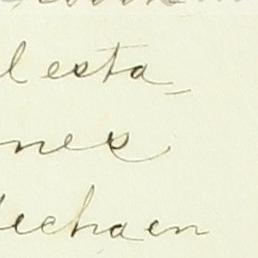 l esta-
nes
fecha en